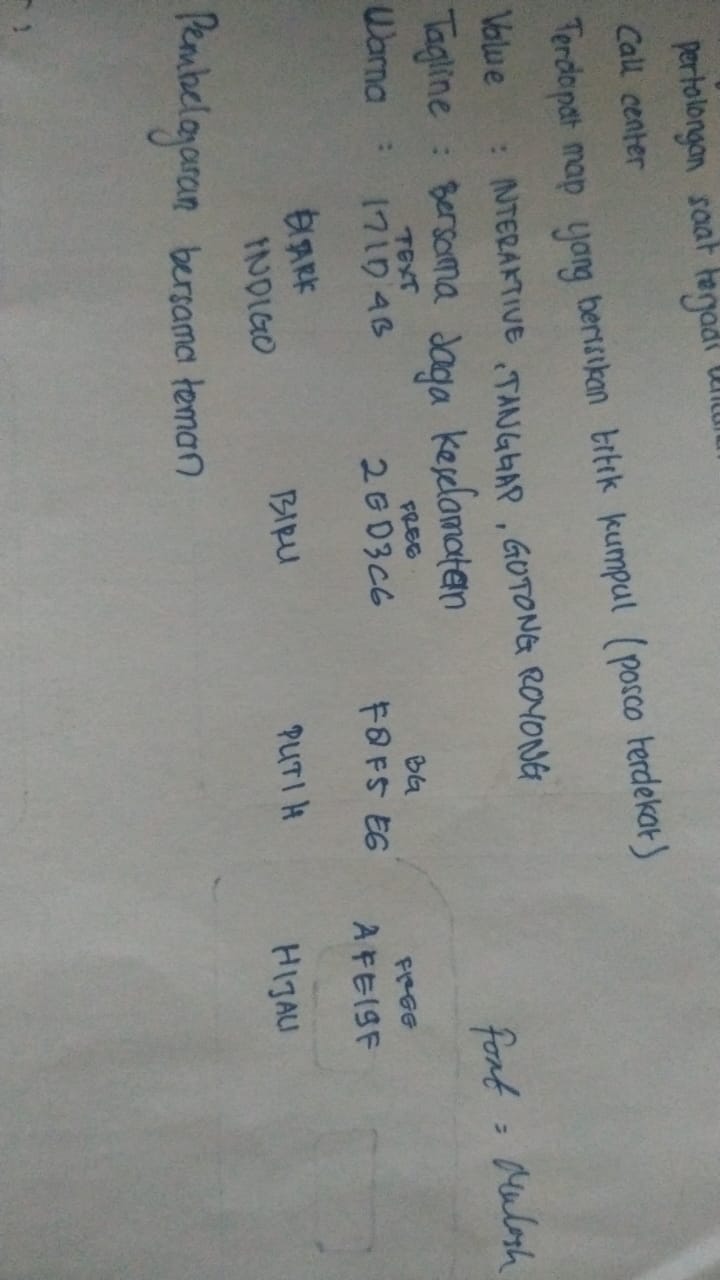 pertolongan saat terjadi
Call center
Terdapat map yang berisikan titik kumpul (posco terdekat)
font = Mulish
Value : INTERAKTIVE, TANGGAP, GOTONG ROYONG
Tagline : Bersama Jaga Keselamatan
TEXT FREE BG FREE
Warna : 171D4B 2GD3C6 F8F5E6 AFE19F
DARK INDIGO BIRU PUTIH HIJAU
Pembelajaran bersama teman